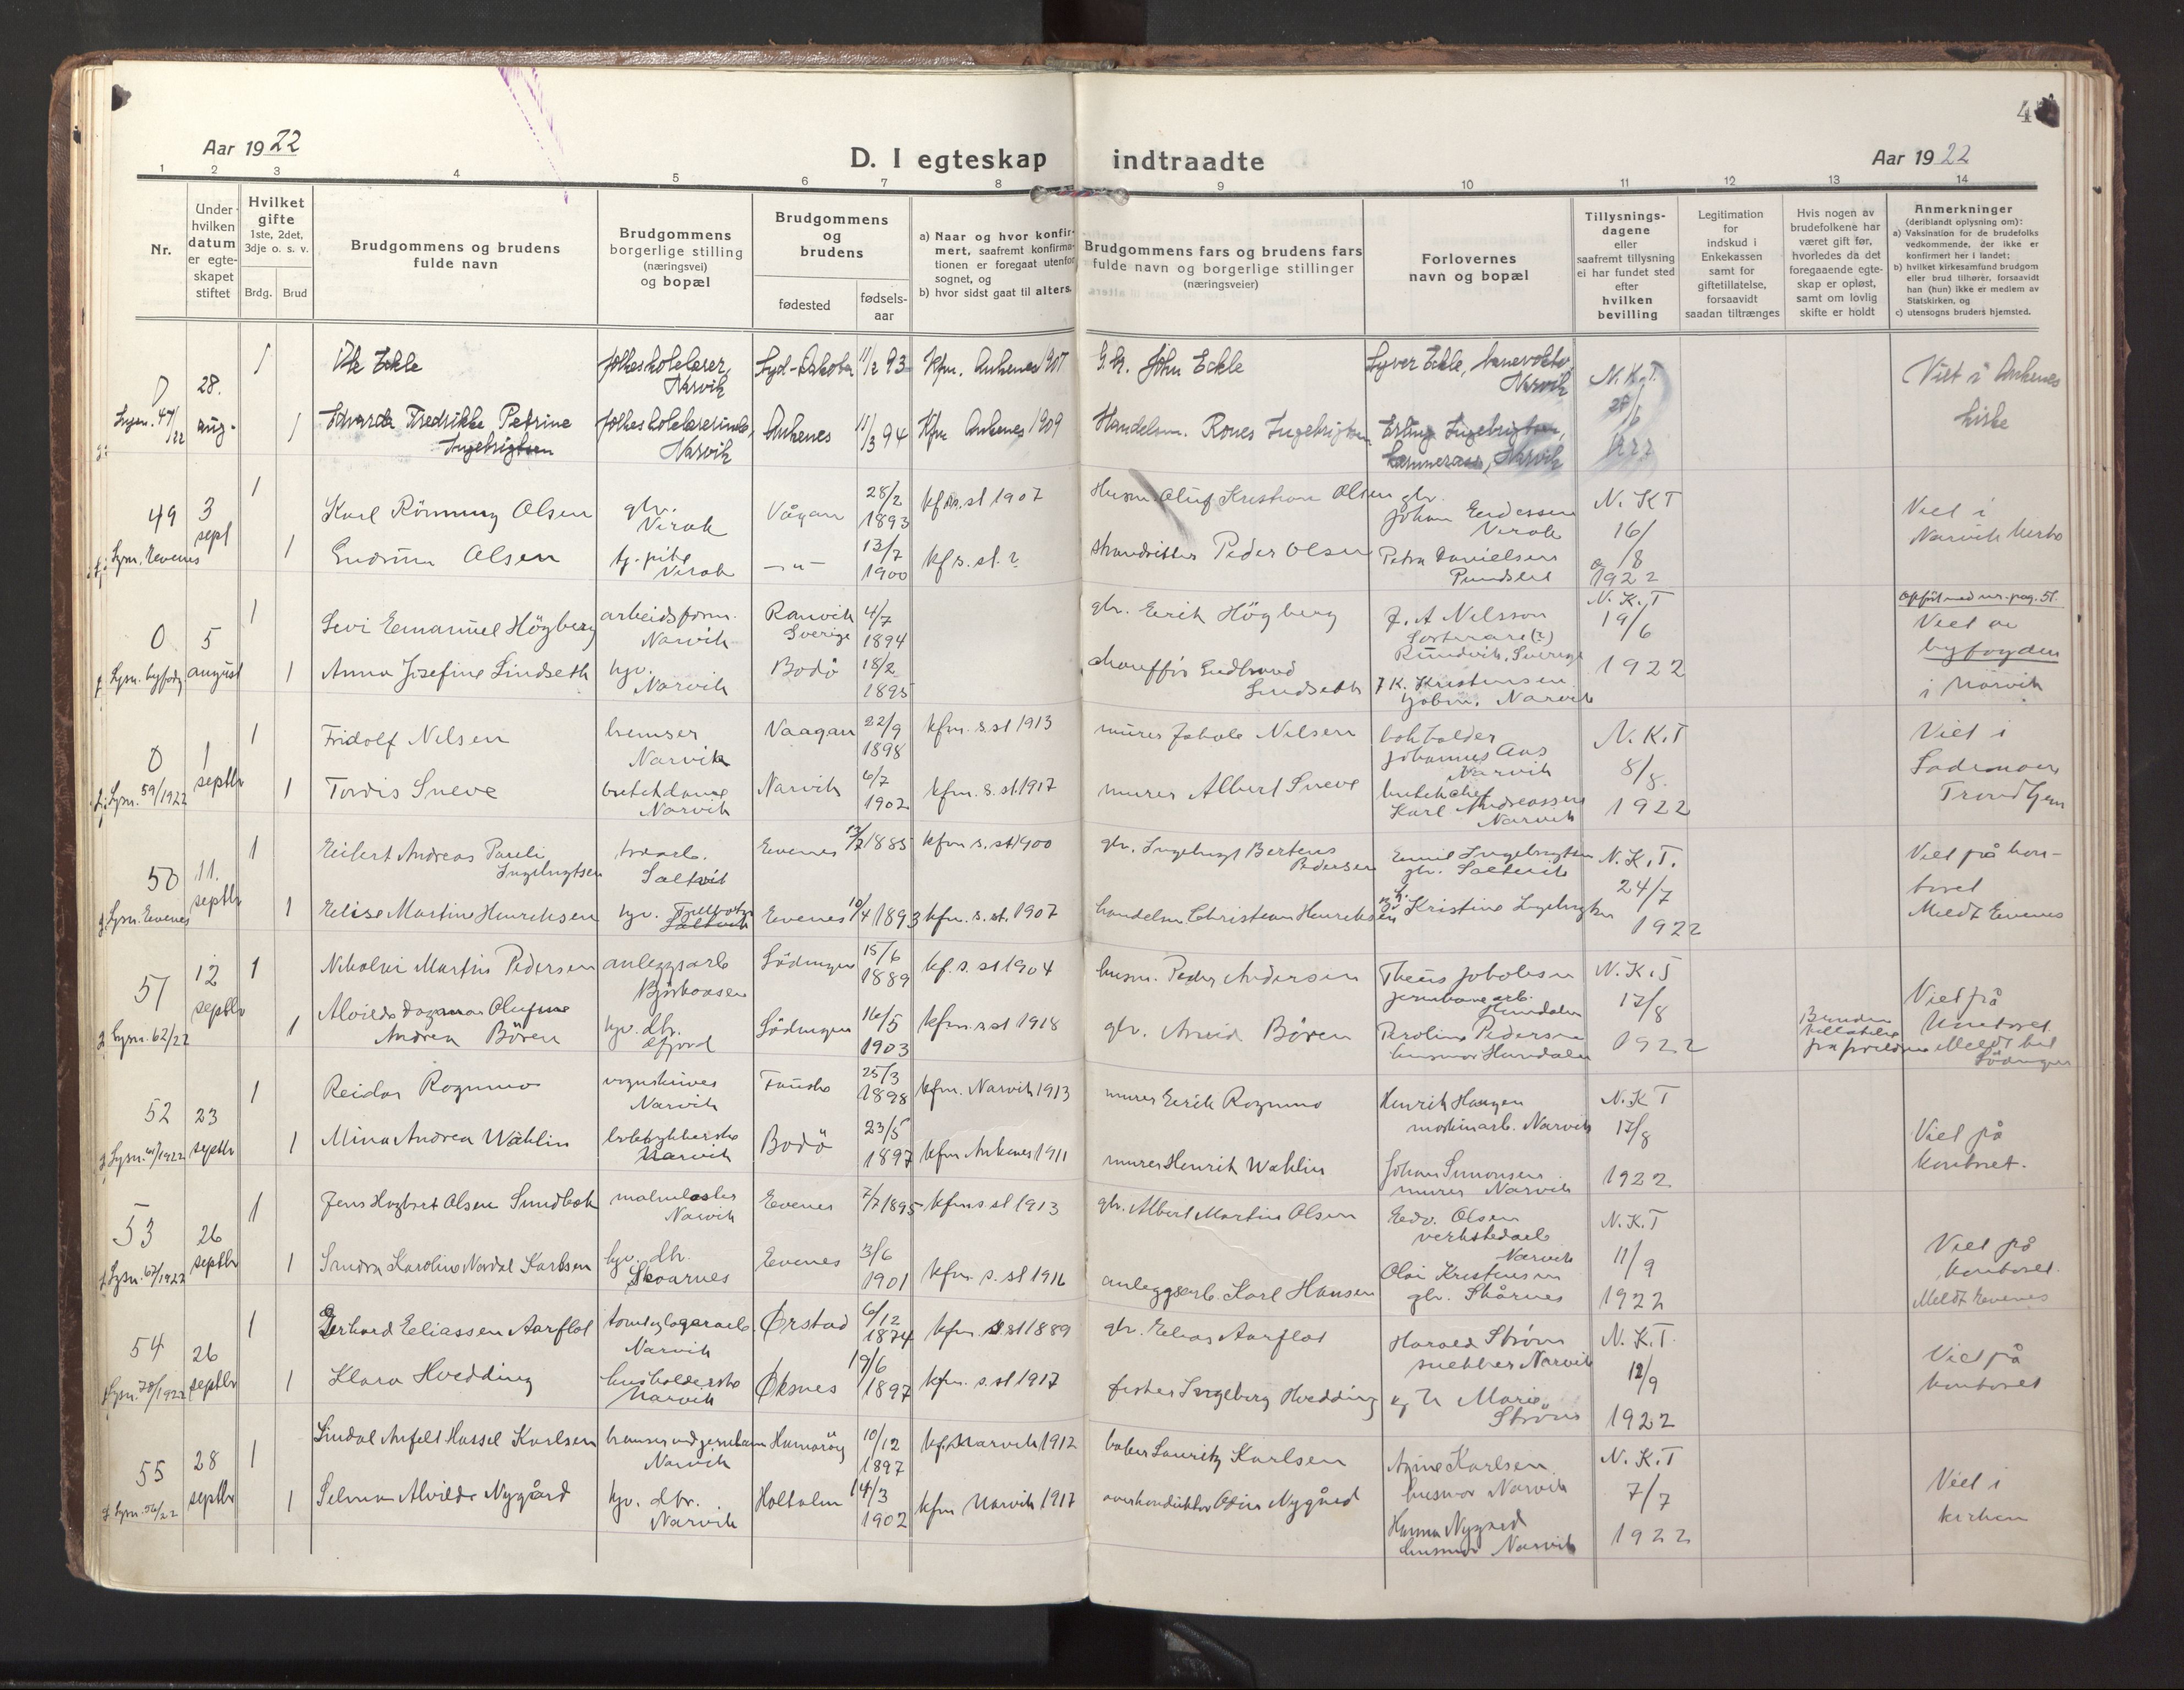 4
Aar 1922
D. I egteskap indtraadte
Aar 1922
1 2 3 4 5 6 7 8 9 10 11 12 13 14
Nr.
Under hvilken datum er egteskapet stiftet
Hvilket gifte 1ste, 2det, 3dje o. s. v.
Brdg. Brud
Brudgommens og brudens fulde navn
Brudgommens borgerlige stilling (næringsvei) og bopæl
Brudgommens og brudens
fødested
fødselsaar
a) Naar og hvor konfirmert, saafremt konfirmationen er foregaat utenfor sognet, og
b) hvor sidst gaat til alters.
Brudgommens fars og brudens fars fulde navn og borgerlige stillinger (næringsveier)
Forlovernes navn og bopæl
Tillysningsdagene eller saafremt tillysning ei har fundet sted efter hvilken bevilling
Legitimation for indskud i Enkekassen samt for giftetillatelse, forsaavidt saadan tiltrænges
Hvis nogen av brudefolkene har været gift før, hvorledes da det foregaaende egteskap er opløst, samt om lovlig skifte er holdt
Anmerkninger (deriblandt oplysning om):
a) Vaksination for de brudefolks vedkommende, der ikke er konfirmert her i landet;
b) hvilket kirkesamfund brudgom eller brud tilhører, forsaavidt han (hun) ikke er medlem av Statskirken, og
c) utensogns bruders hjemsted.
0 28. aug. 1 Eckle folkeskolelærer, Narvik Syd-Dakota 11/2 93 Kfm. Ankenes 1907 John Eckle Syver Eckle, Narvik N.K.T. Viet i Ankenes kirke
Lysn. 47/22 1 Edvarda Fredrikke Petrine Ingebrigtsen folkeskolelærerinde, Narvik Ankenes 11/3 94 Kfm Ankenes 1909 Handelsm. Rones Ingebrigtsen Erling Ingebrigtsen, Narvik
49 3 sept 1 Karl Rönning Olsen gbr. Virak Vågan 28/2 1893 kfm. s. st 1907 Husm. Oluf Kristian Olsen gbr. Johan Endressen Virak N.K.T 16/8 1922 Viet i Narvik kirke
Lysn. Evenes 1 Gudrun Olsen tj. pike Virak —"— 13/7 1900 kf s. st. ? strandsitter Peder Olsen Petra Danielsen Pundslet
0 5 august 1 Levi Emanuel Högberg arbeidsform. Narvik Sverige 4/7 1894 gbr. Erik Högberg J. A Nelsson Rundvik, Sverige N.K.T 19/6 1922 Viet av byfogden i Narvik
Lysn. byfogd. 1 Anna Josefine Lindseth hjv. Narvik Bodö 18/2 1895 chauffør Gudbrand Lindseth K. Kristensen Narvik
0 1 septbr 1 Fridolf Nilsen bremser Narvik Vaagan 22/9 1898 kfm. s. st 1913 murer Jakob Nilsen bokholder Johannes Aas Narvik N.K.T 8/8. 1922 Viet i Lademoen Trondhjem
Lysn. 59/1922 1 Tordis Sneve butikdame Narvik Narvik 6/7 1902 kfm. s. st. 1917 murer Albert Sneve butikchef Karl Andreassen Narvik
50 11. septbr 1 Eilert Andreas Pareli Ingebrigtsen Saltvik Evenes 1885 kfm. s. st 1900 gbr. Ingebrigt Bertens Pedersen Emil Ingebrigtsen gbr. Saltvik N.K.T. 24/7 1922 Viet på kontoret Meldt Evenes
Lysn. Evenes 1 Elise Martine Henriksen hjv. Evenes 10/4 1893 kfm. s. st. 1907 handelsm Christian Henriksen Kristine Ingebrigtsen
51 12 septbr 1 Nikolai Martin Pedersen anleggsarb Bjerkaasen Lödingen 15/6 1889 kf. s. st 1904 husm. Peder Andersen Theus Jakobsen jernbanearb. Hundalen N.K.T 17/8 1922 Viet på kontoret Meldt til Lödingen
Lysn. 62/22 1 Alvilde Dagmar Olufine Andrea Bören hjv. dtr. Efjord Lödingen 16/5 1903 kfm. s st 1918 gbr. Arvid Bören Karoline Pedersen husmor Hundalen
52 23 septbr 1 Reidar Rognmo vognskriver Narvik Fauske 25/3 1898 kfm. Narvik 1913 murer Eirik Rognmo Henrik Haugen maskinarb. Narvik N.K.T 17/8 1922 Viet på kontoret.
Lysn. 61/1922 1 Mina Andrea Wahlin Narvik Bodö 23/5 1897 kfm Ankenes 1911 murer Henrik Wahlin Johan Simonsen murer Narvik
53 26 septbr 1 Jens Hagbart Olsen Sundbak malmlaster Narvik Evenes 7/7 1895 kfm s st 1913 gbr. Albert Martin Olsen Edv. Olsen verkstedarb Narvik N.K.T 11/9 1922 Viet på kontoret. Meldt Evenes
Lysn. 67/1922 1 Sandra Karoline Nordal Karlsen hjv. dtr. Skoarnes Evenes 3/6 1901 kfm. s. st 1916 anleggsarb. Karl Hansen Olai Kristensen gbr. Skårnes
54 26 septbr 1 Gerhard Eliassen Aarflot Narvik Ørstad 6/12 1874 kfm. s st 1889 gbr. Elias Aarflot Harald Strøm snekker Narvik N.K.T. 12/9 1922 Viet på kontoret
Lysn. 70/1922 1 Klara Hvedding husholderske Narvik Øksnes 19/6 1897 kfm. s. st 1917 fisker Ingeberg Hvedding Marie Strøm
55 28 septbr 1 Sindal Arfelt Hassel Karlsen bremser ved jernbanen Narvik Hamarøy 10/12 1897 kf. Narvik 1912 baker Lauritz Karlsen Karlsen husmor Narvik N.K.T 7/7 1922 Viet i kirken
Lysn. 56/22 1 Selma Alvilde Nygård hjv. dtr. Narvik Holtalen 14/3 1902 kfm Narvik 1917 overkonduktør Odin Nygård Hanna Nygård husmor Narvik